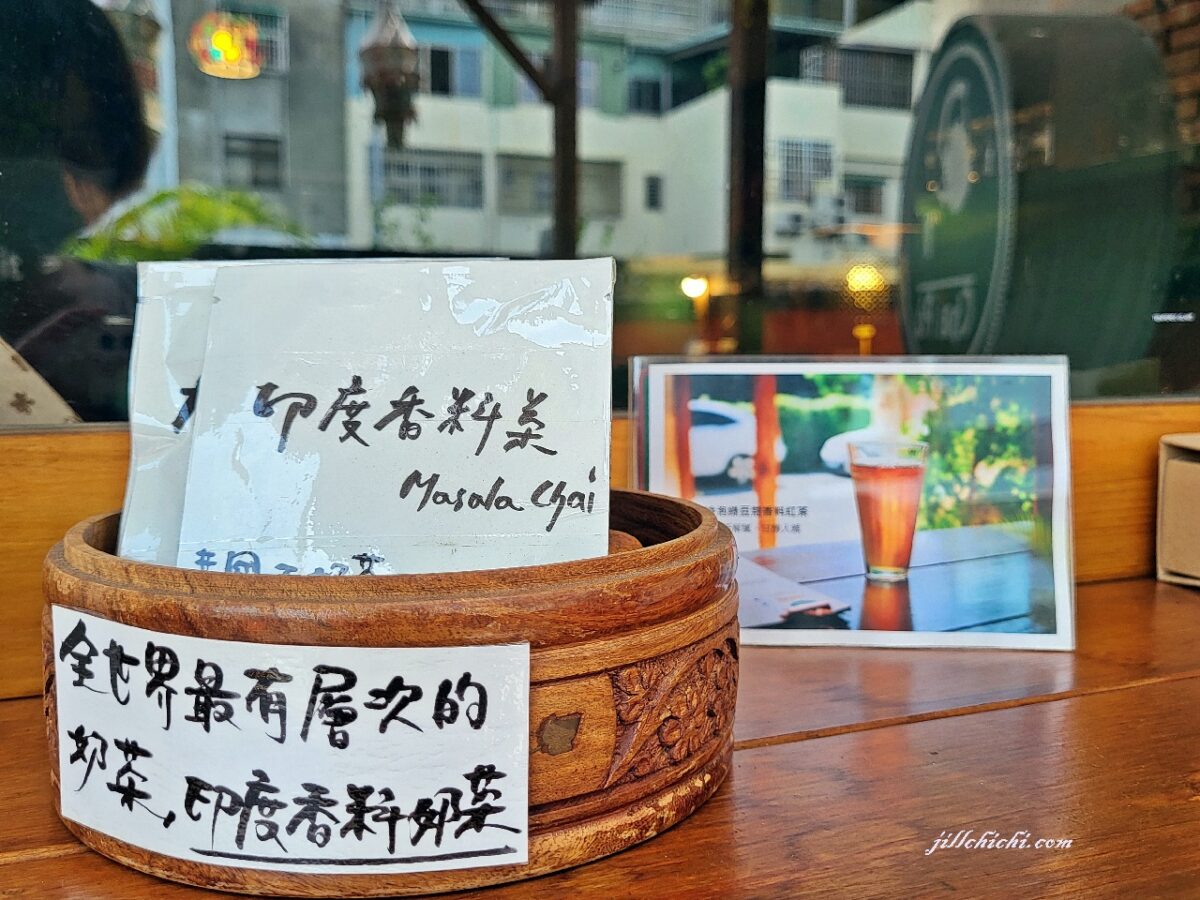 印度香料茶
Masala Chai
全世界最有層次的
奶茶,印度香料奶茶
香料紅茶
jillchichi.com